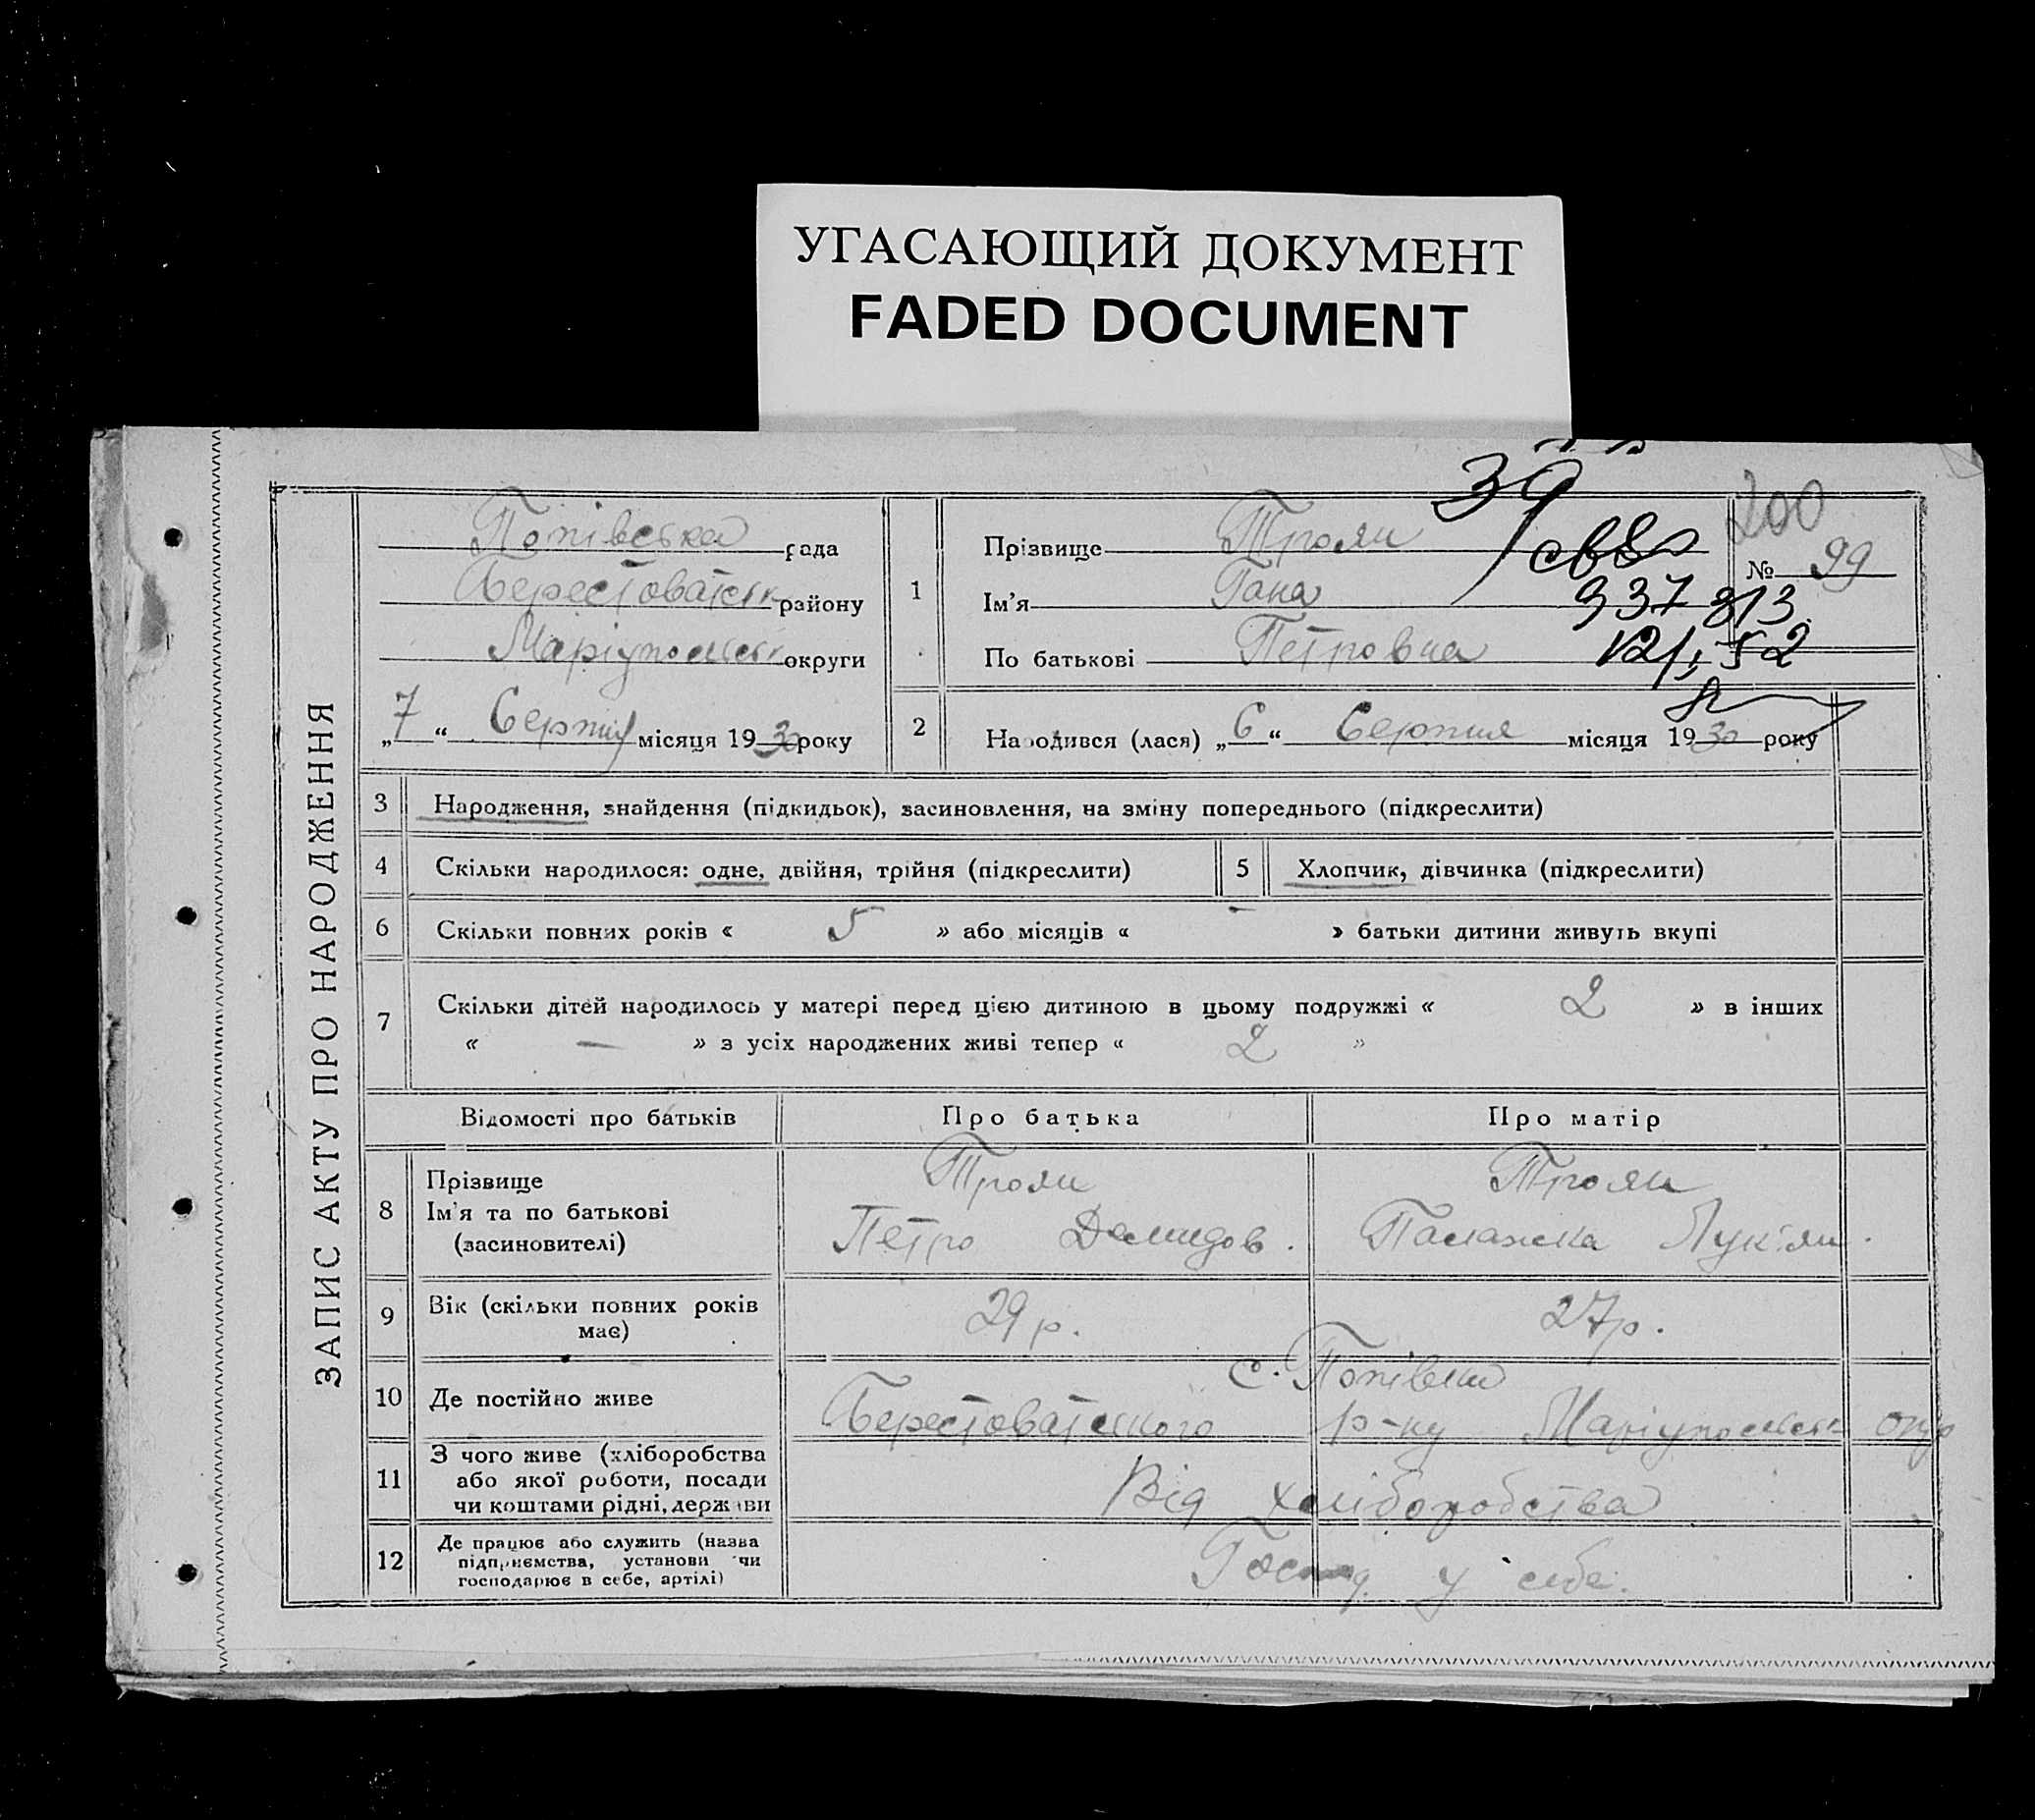 УГАСАЮЩИЙ ДОКУМЕНТ
FADED DOCUMENT
ЗАПИС АКТУ ПРО НАРОДЖЕННЯ
Попівська рада
Берестоватськ району
Маріупольськ округи
„7“ Серпня місяця 1930 року
39
200
№ 99
1
Прізвище Троян
Ім’я Гана
По батькові Петровна
937 813
12/I 52
2
Народився (лася) „6“ Серпня місяця 1930 року
3 Народження, знайдення (підкидьок), засиновлення, на зміну попереднього (підкреслити)
4 Скільки народилося: одне, двійня, трійня (підкреслити)
5 Хлопчик, дівчинка (підкреслити)
6 Скільки повних років « 5 » або місяців « - » батьки дитини живуть вкупі
7 Скільки дітей народилось у матері перед цією дитиною в цьому подружжі « 2 » в інших
« — » з усіх народжених живі тепер « 2 »
Відомості про батьків Про батька Про матір
8 Прізвище
Ім’я та по батькові
(засиновителі)
Троян
Петро Демидов.
Троян
Палажка Лук'ян.
9 Вік (скільки повних років
має)
29 р. 27 р.
10 Де постійно живе
с. Попівки
Берестоватського р-ну Маріупольськ окр
11 З чого живе (хліборобства
або якої роботи, посади
чи коштами рідні, держави
Від хліборобства
12 Де працює або служить (назва
підприємства, установи чи
господарює в себе, артілі)
Госпд. у себе.